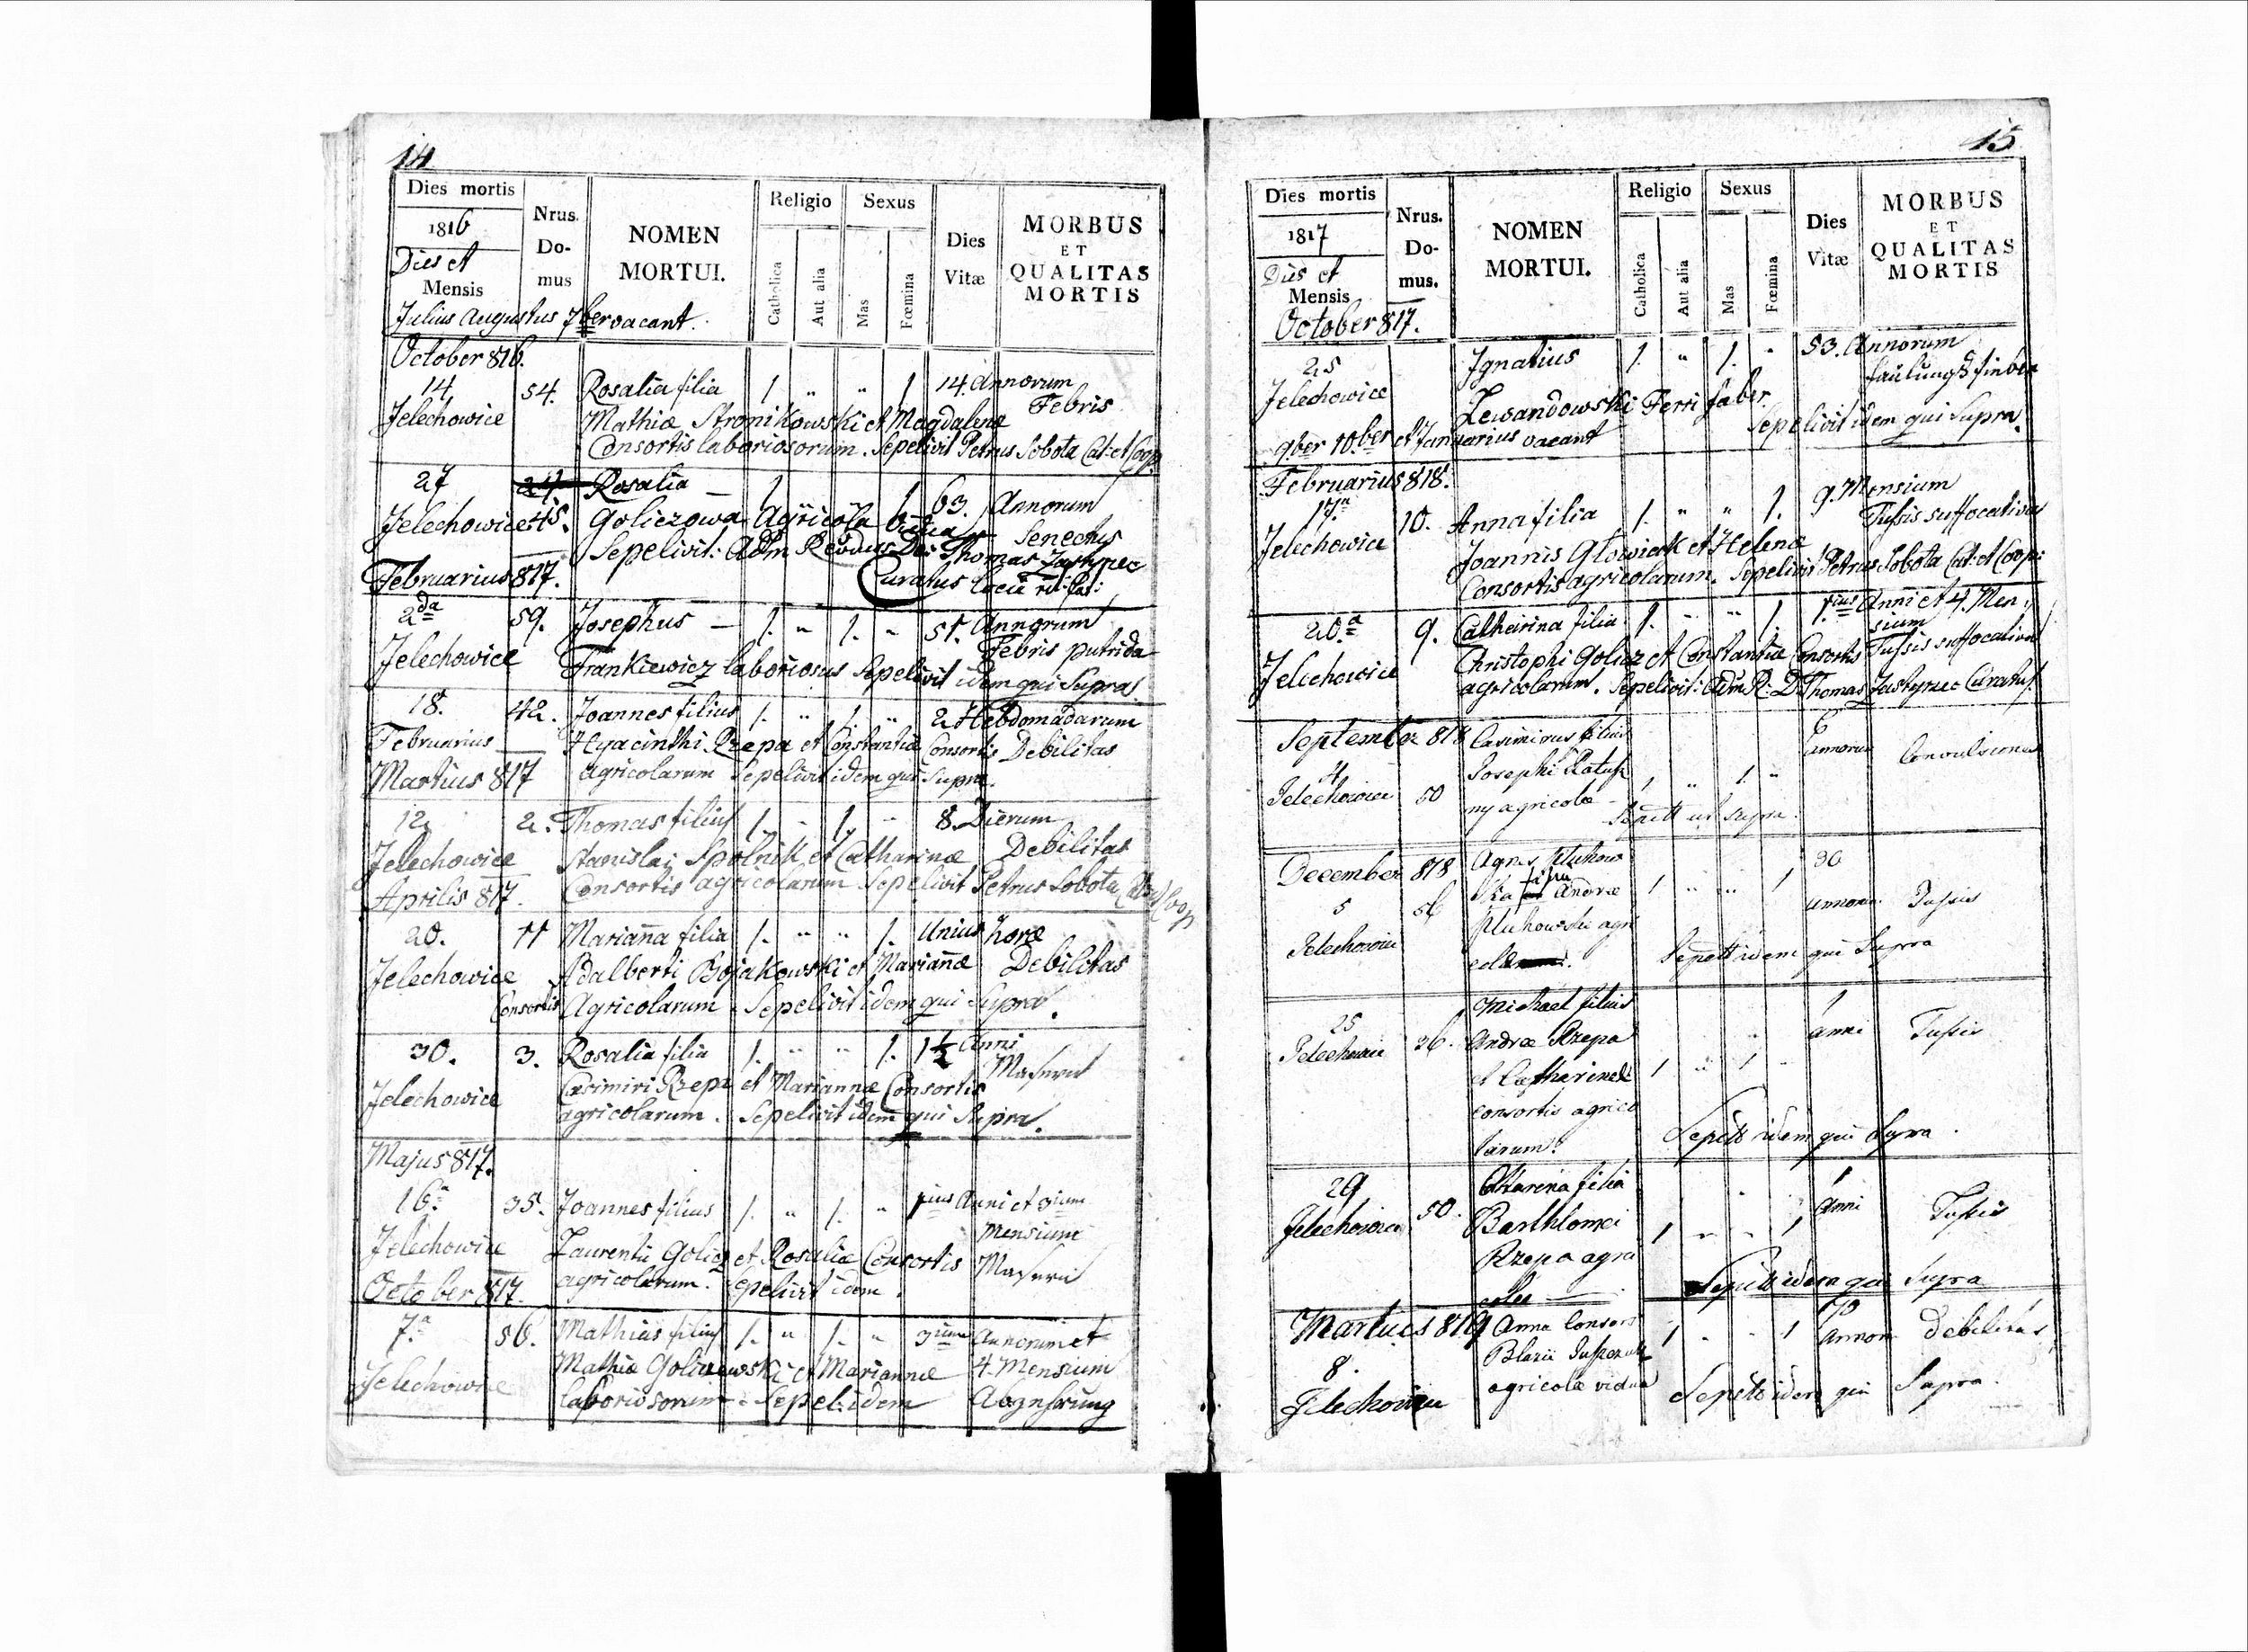 14
Dies mortis
Nrus. Do- mus
NOMEN MORTUI.
Religio
Catholica
Aut alia
Sexus
Mas
Fœmina
Dies Vitæ
MORBUS ET QUALITAS MORTIS
1816
Dies et
Mensis
Julius Augustus 7ber vacant.
October 816.
14 54. Rosalia filia 1 " " 1 14. Annorum
Jelechowice Mathiæ Stronikowski et Magdalenæ Febris
Consortis laboriosorum. Sepelivit Petrus Sobota Cat: et Coop:
27 24 Rosalia — 1 1 63. Annorum
Jelechowice 45. Goliczowa Agricola Vidua Senectus
Sepelivit: Adm Rdus Dus Thomas Jastrzec
Februarius 817. Curatus
2da 59. Josephus — 1. " 1. " 51. Annorum
Jelechowice Frankiewicz laboriosus Sepelivit idem qui Supra Febris putrida
18. 42. Joannes filius 1. " 1. " 2 Hebdomadarum
Februarius Hyacinthi Rzepa et Constantiæ Consortis Debilitas
Martius 817 agricolarum Sepelivit idem qui Supra.
12 2. Thomas filius 1. " 1. " 8. Dierum
Jelechowice Stanislai Spolnik et Catharinæ Debilitas
Aprilis 817. Consortis agricolarum Sepelivit Petrus Sobota Cat: et Coop
20. 11 Marianna filia 1. " " 1. Unius horæ
Jelechowice Adalberti Bojakowski et Mariannæ Debilitas
Consortis Agricolarum. Sepelivit idem qui Supra.
30. 3. Rosalia filia 1. " " 1. 1½ Anni
Jelechowice Casimiri Rzepa et Mariannæ Consortis Maseru
agricolarum. Sepelivit idem qui Supra.
Majus 817.
16a 35. Joannes filius 1. " 1. " 1ius Anni et 3ium
Mensium
Jelechowice Laurentii Golicz et Rosaliæ Consortis Maseru
October 817. agricolarum. Sepelivit idem.
7a 56. Mathias filius 1. " 1. " 3ium Annorum et
Jelechowice Mathiæ Goliczewski et Mariannæ 4 Mensium
laboriosorum. Sepel: idem Abzehrung
15
Dies mortis
Nrus. Do- mus.
NOMEN MORTUI.
Religio
Catholica
Aut alia
Sexus
Mas
Fœmina
Dies Vitæ
MORBUS ET QUALITAS MORTIS
1817
Dies et
Mensis
October 817.
25 Ignatius 1. " 1. " 53. Annorum
Jelechowice Lewandowski Ferri faber. Faulungs fieber
Sepelivit idem qui Supra.
9ber 10ber et Januarius vacant
Februarius 818.
17a 10. Anna filia 1. " " 1. 9. Mensium
Jelechowice Joannis Głowiack et Helenæ Tussis suffocativa
Consortis agricolarum. Sepelivit Petrus Sobota Cat: et Coop:
20.a 9. Catharina filia 1. " " 1. 1.ius Anni et 4. Men:
sium
Jelechowice Christophi Golicz et Constantiæ Consortis Tussis suffocativa
agricolarum. Sepelivit: Adm R: D. Thomas Jastrzec Curatus.
September 818 Casimirus filius 6 annorum Convulsiones
4 Josephi Ratus
Jelechowice 50 ny agricolæ 1 " 1 "
Sepelt ut supra.
December 818 Agnes Pluhow 30
5 56 ska filia Andreæ 1 " " 1 annorum Tussis
Jelechowice Pluhowski agri
colæ. Sepelt idem qui Supra
25 36. Michael filius 1
Jelechowice Andreæ Rzepa anni Tussis
et Catharinæ 1 " 1 "
consortis agrico
larum. Sepelt idem qui Supra.
29 50. Catharina filia 1
Jelechowice Barthlomei 1 " " 1 anni Tussis
Rzepa agri
colæ — Sepelt idem qui Supra
Martius 819 Anna Consors 1 " " 1 70 annorum debilitas
8. Blasii
Jelechowice agricolæ vidua Sepelt idem qui Supra.